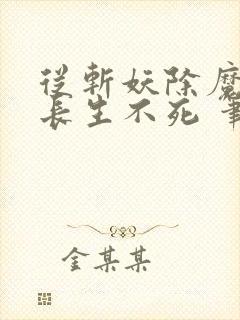 從斬妖除魔
長生不死
金某某